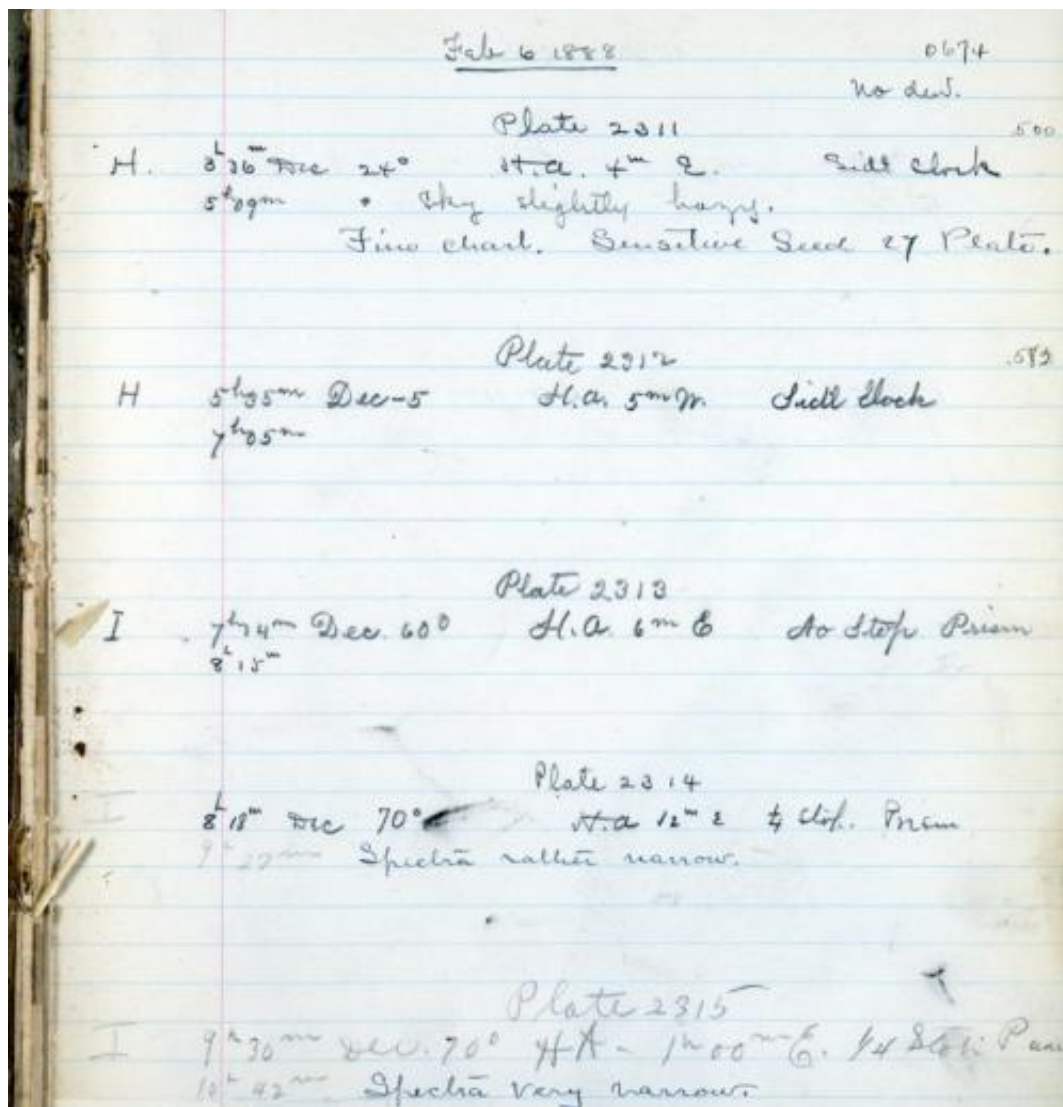 Feb 6 1888 0674
No dew.
Plate 2311 .500
H. 3h 36m Dec 24° H.A. 4m E. Sidl Clock
5h 09m Sky slightly hazy.
Fine chart. Sensitive Seed 27 Plate.
Plate 2312
H 5h 35m Dec -5 H.A. 5m W. Sidl Clock
7h 05m
Plate 2313
I 7h 14m Dec. 60° H.A. 6m E No Stop Prism
8h 15m
Plate 2314
I 8h 18m Dec 70° H.A 12m E Stop. Prism
9h 27m Spectra rather narrow.
Plate 2315
I 9h 30m Dec. 70° HA - 1h 00m E. 1/4 Stop.
10h 42m Spectra very narrow.